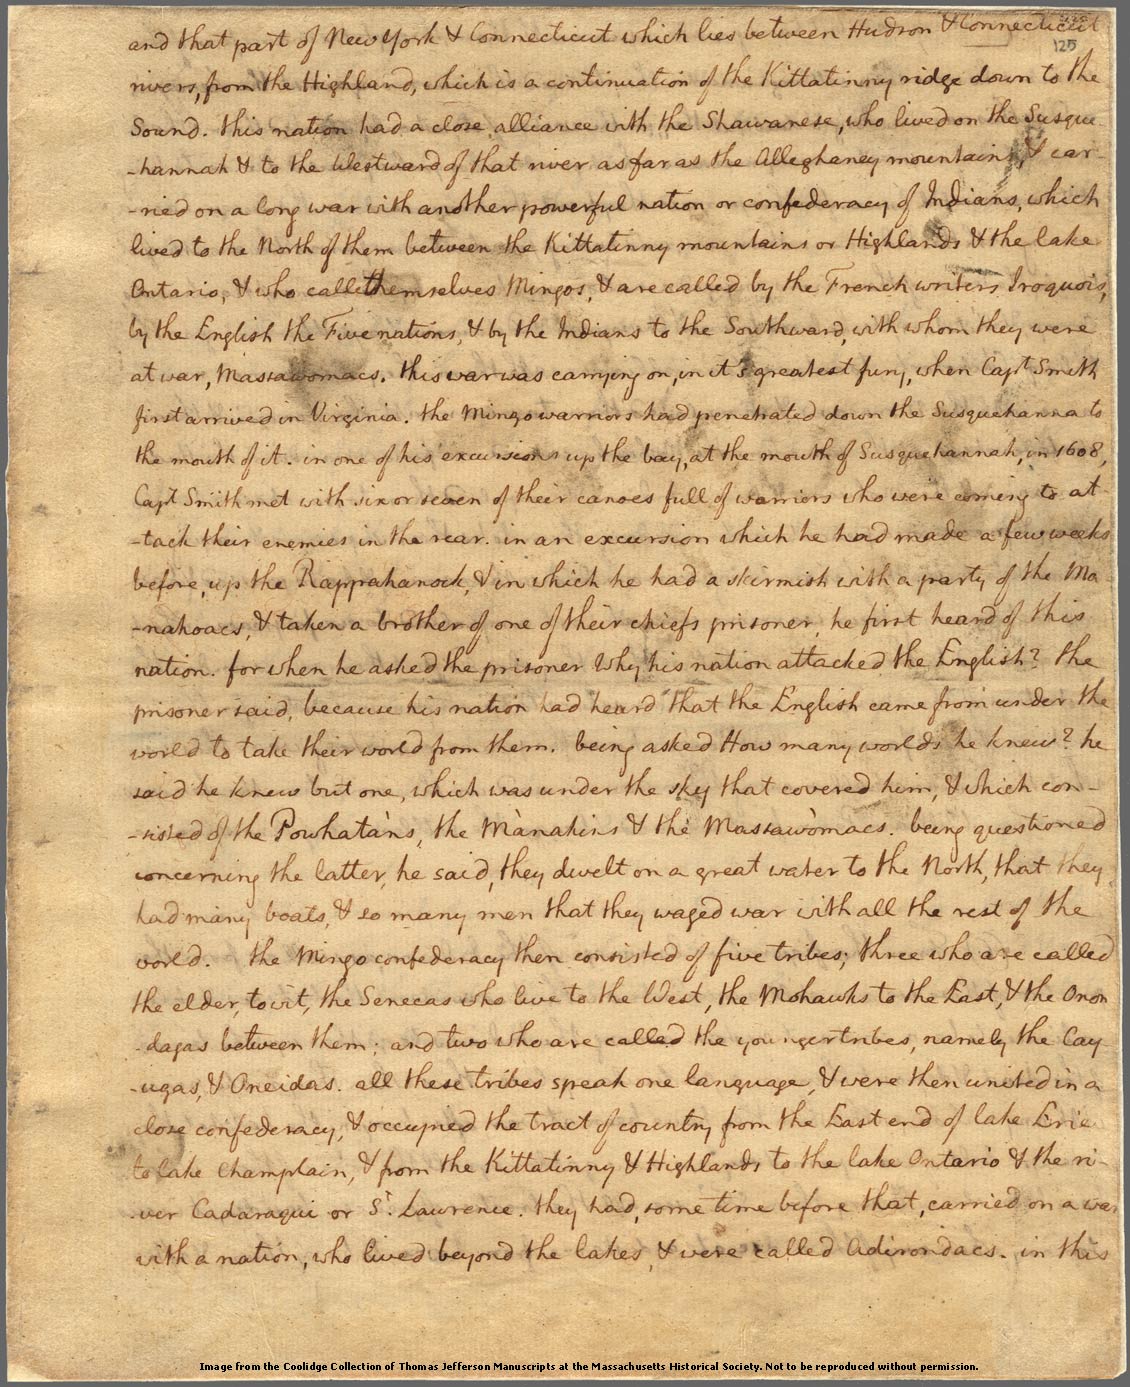 and that part of New York & Connecticut which lies between Hudson & Connecticut
125
rivers, from the Highland, which is a continuation of the Kittatinny ridge down to the
Sound. this nation had a close alliance with the Shawanese, who lived on the Susque-
-hannah & to the Westward of that river as far as the Alleghaney mountains, & car-
-ried on a long war with another powerful nation or confederacy of Indians, which
lived to the North of them between the Kittatinny mountains or Highlands & the lake
Ontario, & who call themselves Mingos, & are called by the French writers Iroquois,
by the English the Five nations, & by the Indians to the Southward, with whom they were
at war, Massawomacs. this war was carrying on, in it's greatest fury, when Capt. Smith
first arrived in Virginia. the Mingo warriors had penetrated down the Susquehanna to
the mouth of it. in one of his excursions up the bay, at the mouth of Susquehannah, in 1608,
Capt. Smith met with six or seven of their canoes full of warriors who were coming to at-
-tack their enemies in the rear. in an excursion which he had made a few weeks
before, up the Rappahanock, & in which he had a skirmish with a party of the Ma-
-nahoacs, & taken a brother of one of their chiefs prisoner, he first heard of this
nation. for when he asked the prisoner Why his nation attacked the English? the
prisoner said, because his nation had heard that the English came from under the
world to take their world from them. being asked How many worlds he knew? he
said he knew but one, which was under the sky that covered him, & which con-
-sisted of the Powhatàns, the Mànakins & the Massawòmacs. being questioned
concerning the latter, he said, they dwelt on a great water to the North, that they
had many boats, & so many men that they waged war with all the rest of the
world. the Mingo confederacy then consisted of five tribes; three who are called
the elder, to wit, the Senecas who live to the West, the Mohawks to the East, & the Onon
-dagas between them; and two who are called the younger tribes, namely the Cay-
-ugas, & Oneidas. all these tribes speak one language, & were then united in a
close confederacy, & occupied the tract of country from the East end of lake Erie
to lake Champlain, & from the Kittatinny & Highlands to the lake Ontario & the ri-
-ver Cadaraqui or St. Lawrence. they had, some time before that, carried on a war
with a nation, who lived beyond the lakes, & were called Adirondacs. in this
Image from the Coolidge Collection of Thomas Jefferson Manuscripts at the Massachusetts Historical Society. Not to be reproduced without permission.